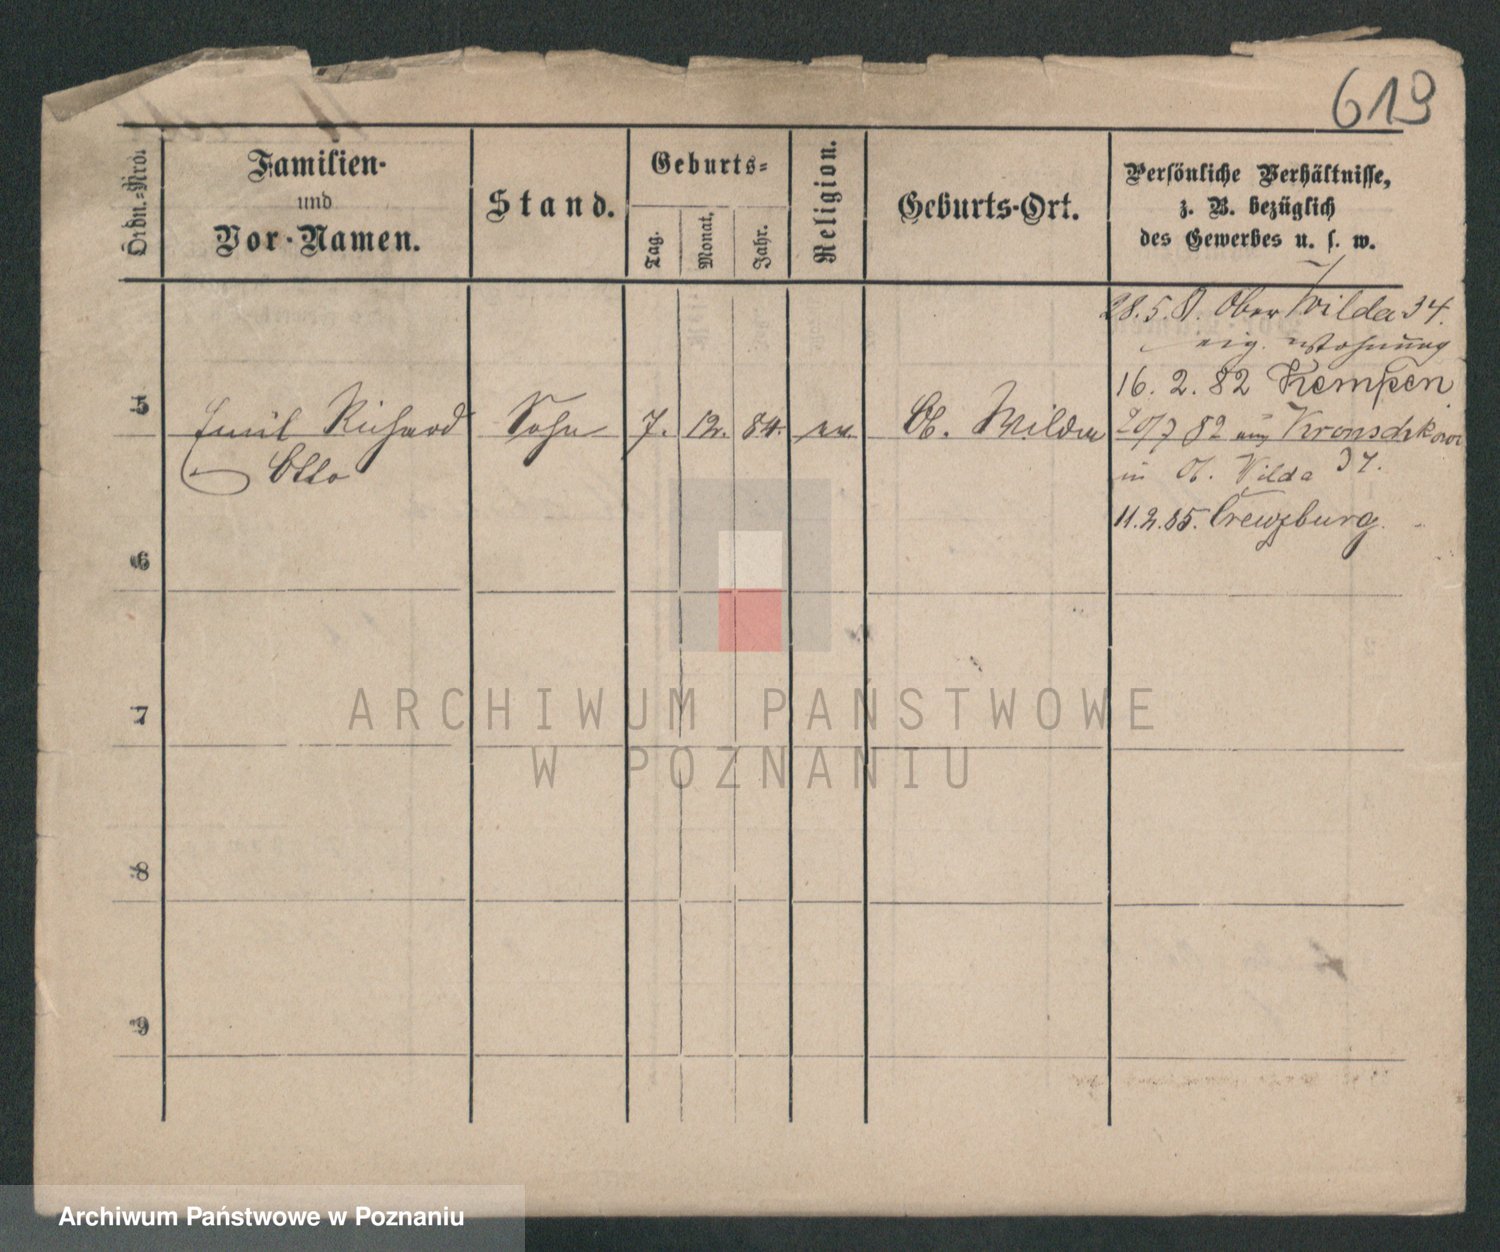 619
Ordn.-Nro.
Familien-
und
Vor-Namen.
Stand.
Geburts-
Tag.
Monat.
Jahr.
Religion.
Geburts-Ort.
Persönliche Verhältnisse,
z. B. bezüglich
des Gewerbes u. s. w.
28.5. Ober Wilda 34.
eig. Wohnung
16. 2. 82 Kempen
5 Emil Richard Sohn 7. 12. 84. ev. Ob. Wilda
Otto
20/7 82 aus Kronschkowo
in Ob. Wilda 37.
11.2.85. Creuzburg.
6
7
8
9
ARCHIWUM PAŃSTWOWE
W POZNANIU
Archiwum Państwowe w Poznaniu